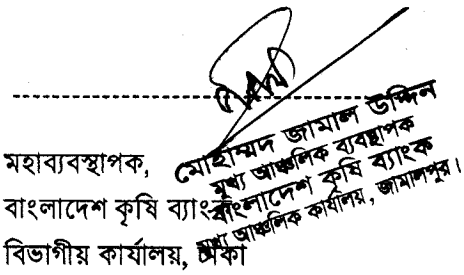 মহাব্যবস্থাপক,
বাংলাদেশ কৃষি ব্যাংক
বিভাগীয় কার্যালয়, ঢাকা
মোহাম্মদ জামাল উদ্দিন
মুখ্য আঞ্চলিক ব্যবস্থাপক
বাংলাদেশ কৃষি ব্যাংক
মুখ্য আঞ্চলিক কার্যালয়, জামালপুর।